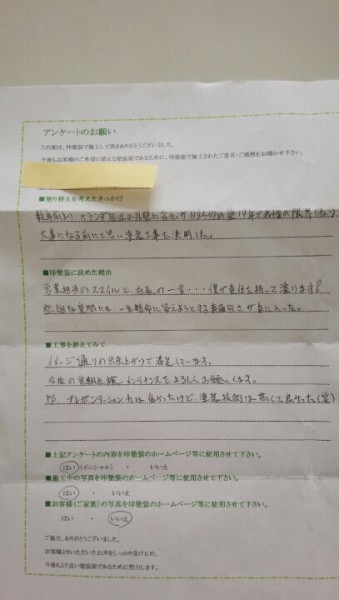 アンケートのお願い
この度は、坪塗装で施工して頂きありがとうございました。
今後もお客様のご希望に添える塗装店であるために、坪塗装で施工されたご意見・ご感想をお聞かせ下さい。
■塗り替えを考えたきっかけ
数年前より、ベランダ
大事になる前にと思い塗装工事を決断した。
■坪塗装に決めた理由
営業担当のスマイルと、社長の一言・・・僕が責任を持って塗ります!
些細な質問にも、一生懸命に答えようとする真面目さが気に入った。
■工事を終えてみて
イメージ通りの出来上がりで満足しています。
今後の定期点検、メンテナンスをよろしくお願いします。
PS. プレゼンテーション力は低かったけど、塗装技術は高くて良かった(笑)
■上記アンケートの内容を坪塗装のホームページ等に使用させて下さい。
はい (イニシャル) ・ いいえ
■施工中の写真を坪塗装のホームページ等に使用させて下さい。
はい ・ いいえ
■お客様(ご家族)の写真を坪塗装のホームページ等に使用させて下さい。
はい ・ いいえ
ご協力、ありがとうございました。
お客様よりいただいたお声をしっかり受け止め、
今後もより良い塗装店であるために努力します。